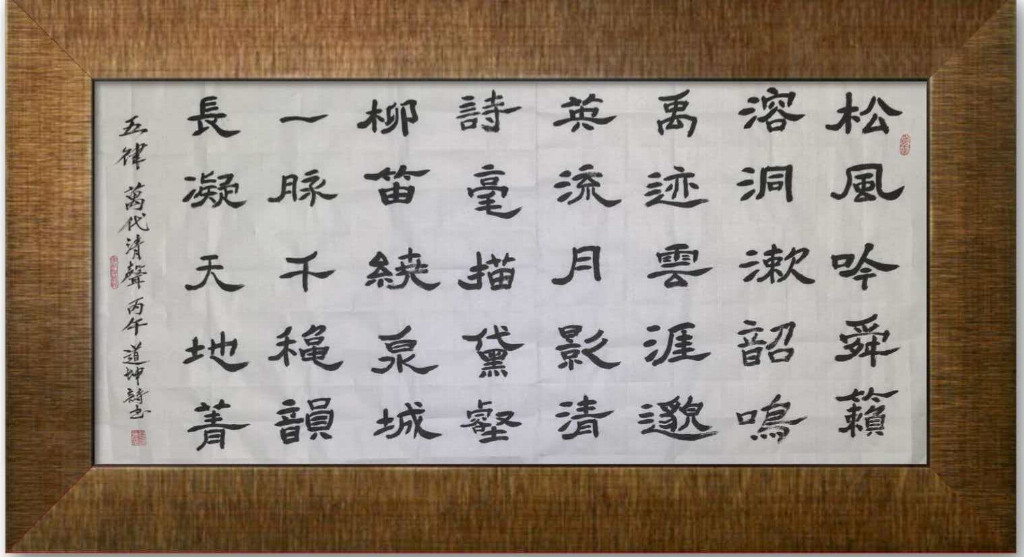 松風吟舜籟
溶洞漱韶鳴
禹迹雲涯邈
英流月影清
詩毫描黛壑
柳笛繞泉城
一脉千穐韻
長凝天地菁
五律 萬代清聲 丙午 道坤詩书